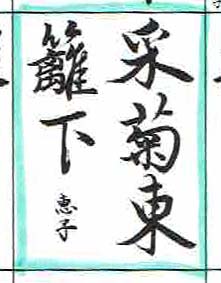 采菊東
籬下
恵子